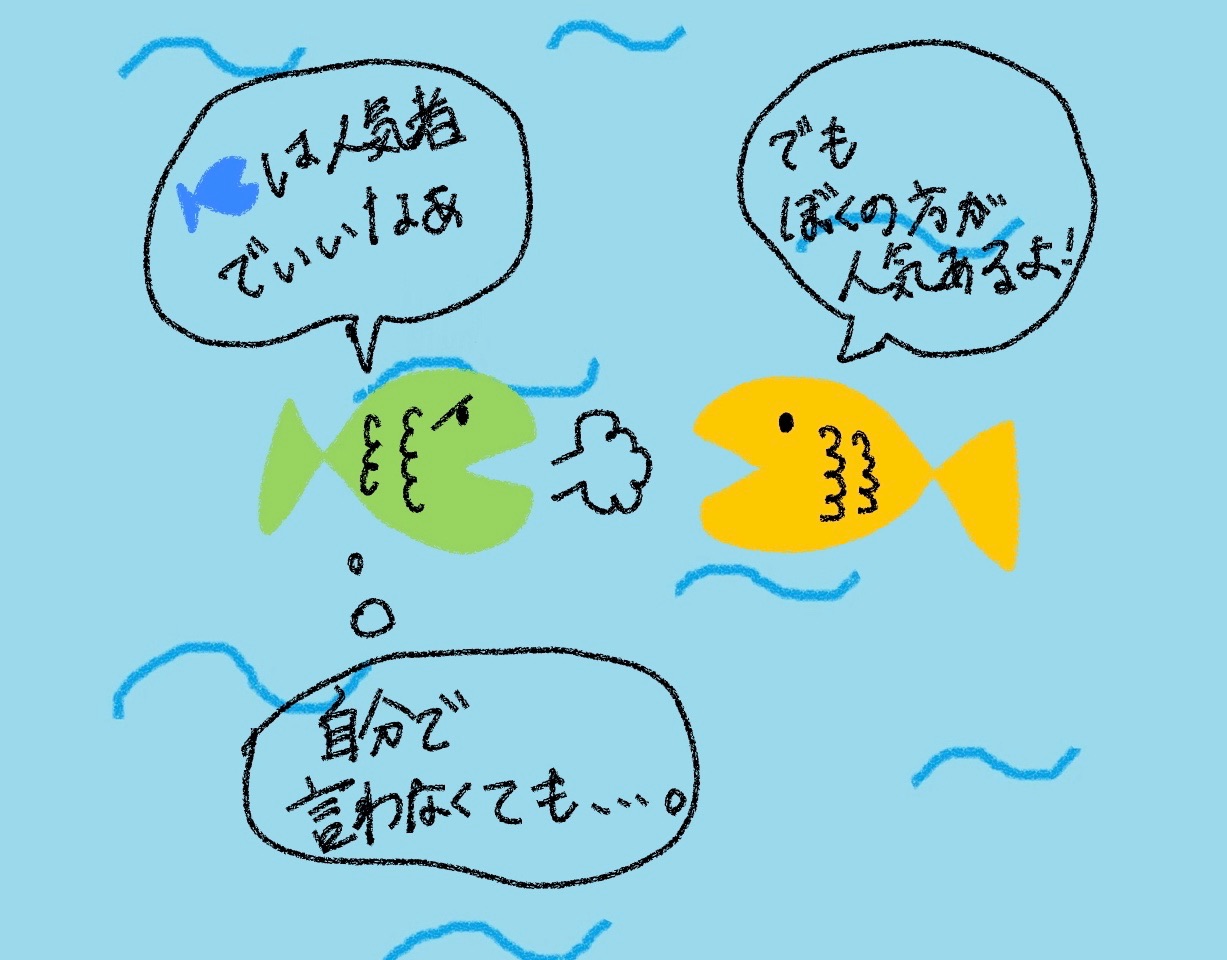 は人気者
でいいなあ
でも
ぼくの方が
人気あるよ!
自分で
言わなくても、…。